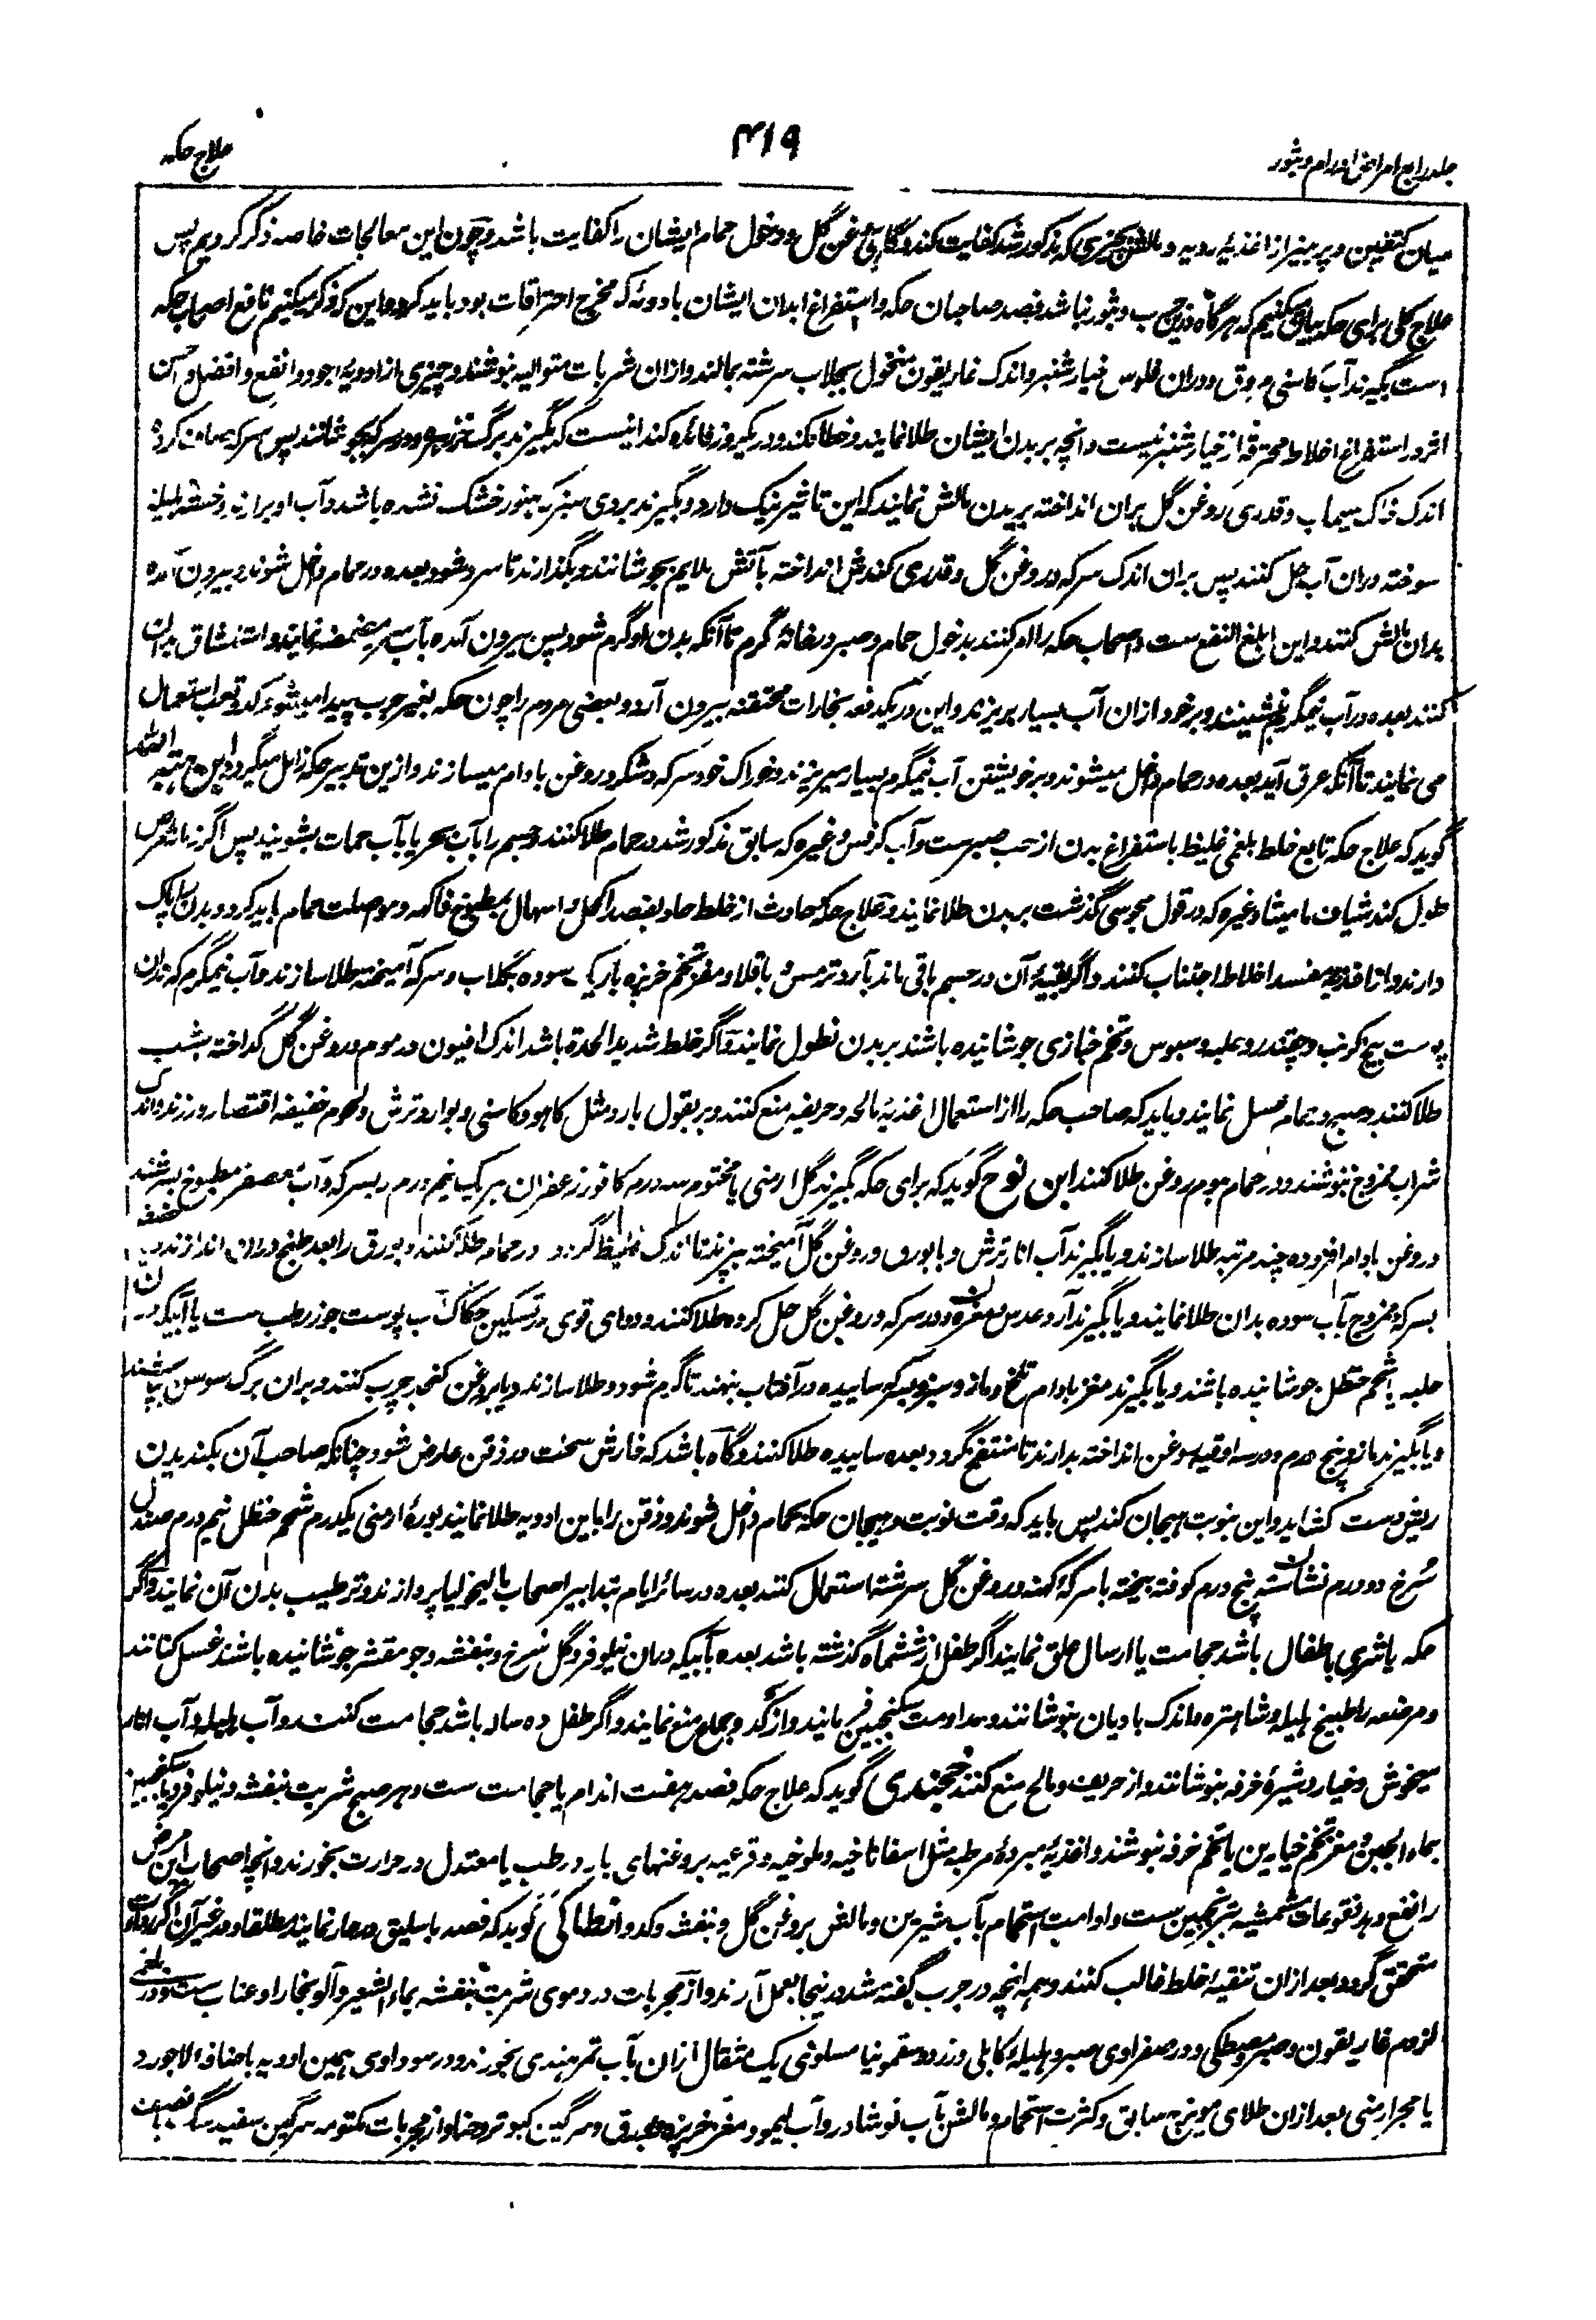 جلد رابع امراض اورام و بثور
۴۱۹
علاج حکه
میان کتفین و پرهیز از اغذیهٔ ردیه و مالش چیزی که مذکور شد کفایت کند و گاهی روغن گل و دخول حمام ایشان را کفایت باشد و چون این معالجات خاصه ذکر کردیم پس
علاج کلی برای حکه بیان میکنیم که هرگاه درین جرب و بثور نباشد فصد صاحبان حکه و استفراغ ابدان ایشان بادویه که مخرج احتراقات بود باید کرد و این که ذکر میکنیم نافع اصحاب حکه
است بگیرند آب کاسنی مروق و دران فلوس خیارشنبر و اندک غاریقون منخول بجلاب سرشته بمالند و ازان شربات متوالیه بنوشند و چیزی از ادویه اجود و انفع و افضل و احسن
اثر در استفراغ اخلاط محترقه از خیارشنبر نیست و انچه بر بدن ایشان طلا نمایند و خطا نکند و در یکروز فائده کند اینست که بگیرند برگ خرزهره و در سرکه بجوشانند پس سرکه صاف کرده
اندک خاک سیماب و قدری روغن گل بران انداخته بر بدن مالش نمایند که این تاثیر نیک دارد و بگیرند بروی سبز که هنوز خشک نشده باشد و آب او برارند و خبث هلیله
سوخته دران آب حل کنند پس بران اندک سرکه و روغن گل و قدری کندش انداخته بآتش ملایم بجوشانند و بگذارند تا سرد شود بعده در حمام داخل شوند و بیرون آمده
بدان مالش کنند و این ابلغ النفع ست و اصحاب حکه را امر کنند بدخول حمام و صبر در خانهٔ گرم تا آنکه بدن او گرم شود پس بیرون آمده بآب سرد مضمضه نمایند و استنشاق بدان
کنند بعده در آب نیمگرم بنشینند و بر خود ازان آب بسیار بریزند و این در یکدفعه بخارات محتقنه بیرون آرد و بعضی مردم را چون حکه بغیر جرب پیدا میشود کد و تعب استعمال
می نمایند تا آنکه عرق آید بعده در حمام داخل میشوند و بر خویشتن آب نیمگرم بسیار میریزند و خوراک خود سرکه و شکر و روغن بادام میسازند و ازین تدبیر حکه زائل میگردد ابن هبة الله
گوید که علاج حکه تابع خلط بلغمی غلیظ باستفراغ بدن از حب صبرست و آب کرفس و غیره که سابق مذکور شد در حمام طلا کنند و جسم را بآب بحر یا بآب حمات بشویند پس اگر زمانه مرض
طول کند شیاف مامیثا و غیره که در قول مجوسی گذشت بر بدن طلا نمایند و علاج حکه حادث از خلط حاد بفصد اکحل و اسهال بمطبوخ فاکهه و مواصلت حمام باید کرد و بدن را پاک
دارند و از اغذیهٔ مفسد اخلاط اجتناب کنند و اگر بقیهٔ آن در جسم باقی ماند بآرد ترمس و باقلا و مغز تخم خربزه باریک سوده بگلاب و سرکه آمیخته طلا سازند و آب نیمگرم که دران
پوست بیخ کرنب و چقندر و حلبه و سبوس و تخم خبازی جوشانیده باشند بر بدن نطول نمایند و اگر خلط شدید الحدة باشد اندک افیون در موم و روغن گل گداخته بشب
طلا کنند و صبح در حمام غسل نمایند و باید که صاحب حکه را از استعمال اغذیهٔ مالحه و حریفه منع کنند و بر بقول بارد مثل کاهو و کاسنی و بوارد ترش و لحوم خفیفه اقتصار ورزند و اندک
شراب ممزوج بنوشند و در حمام بموم روغن طلا کنند ابن نوح گوید که برای حکه بگیرند گل ارمنی یا مختوم سه درم کافور زعفران هر یک نیم درم و بسرکه و آب عصفر مطبوخ بسرشند
و روغن بادام افزوده چند مرتبه طلا سازند و یا بگیرند آب انار ترش و با بورق و روغن گل آمیخته بپزند تا اندک غلیظ گردد و در حمام طلا کنند و بورق را بعد طبخ دران اندازند و یا
بسرکه ممزوج بآب سوده بدان طلا نمایند و یا بگیرند آرد عدس و در سرکه و روغن گل حل کرده طلا کنند و دوای قوی در تسکین حکاک آب پوست جوز رطب ست یا آبیکه دران
حلبه یا شحم حنظل جوشانیده باشند و یا بگیرند مغز بادام تلخ و مازو سبز و بسرکه ساییده در آفتاب بنهند تا گرم شود و طلا سازند و یا بروغن کنجد چرب کنند و بران برگ سوسن بپاشند
و یا بگیرند مازو پنج درم و در سه اوقیه روغن انداخته بدارند تا منتفخ گردد بعده ساییده طلا کنند و گاه باشد که خارش سخت در ذقن عارض شود چنانکه صاحب آن بکندیدن
ریش دست کشاید و این بنوبت هیجان کند پس باید که وقت نوبت و هیجان حکه بحمام داخل شوند و ذقن را باین ادویه طلا نمایند بورهٔ ارمنی یکدرم شحم حنظل نیم درم صندل
سرخ دو درم نشاسته پنج درم کوفته بیخته با سرکهٔ کهنه و روغن گل سرشته استعمال کنند بعده در سائر ایام بتدابیر اصحاب مالیخولیا پردازند و ترطیب بدن آن نمایند و اگر
حکه یا شری باطفال باشد حجامت یا ارسال علق نمایند اگر طفل از ششماه گذشته باشد بعده بآبیکه دران نیلوفر و گل سرخ و بنفشه و جو مقشر جوشانیده باشند غسل کنانند
و مرضعه را طبیخ هلیله و شاهتره و اندک بادیان بنوشانند و مداومت سکنجبین فرمایند و از کد و جماع منع نمایند و اگر طفل ده ساله باشد حجامت کنند و آب هلیله و آب انار
میخوش و خیار و شیرهٔ خرفه بنوشانند و از حریف و مالح منع کنند خجندی گوید که علاج حکه فصد هفت اندام یا حجامت ست و هر صبح شربت بنفشه و نیلوفر و یا سکنجبین
بماء الجبن و مغز تخم خیارین یا تخم خرفه بنوشند و اغذیهٔ مبردهٔ مرطبه مثل اسفاناخیه و ملوخیه و قرعیه بروغنهای بارد رطب یا معتدل در حرارت بخورند و انچه اصحاب این مرض
را نفع دهد نقوعات مشمشیه بترنجبین ست و ادامت استحمام بآب شیرین و مالش بروغن گل و بنفشه و کدو انطاکی گوید که فصد باسلیق در حار نمایند مطلقا و در غیر آن اگر رداءت
متحقق گردد بعد ازان تنقیهٔ خلط غالب کنند و همه انچه در جرب گفته شد در اینجا بعمل آرند و از مجربات در دموی شربت بنفشه بماء الشعیر و آلوبخارا و عناب ست و در بلغمی
لزوم غاریقون و صبر و مصطکی و در صفراوی صبر و هلیلهٔ کابلی و زرد و سقمونیا مساوی یک مثقال ازان بآب تمرهندی بخورند و در سوداوی همین ادویه باضافهٔ لاجورد
یا حجر ارمنی بعد ازان طلای مویزج سابق و کثرت استحمام و مالش بآب نوشادر و آب لیمو و مغز خربزه و بورق و سرگین کبوتر و حنا و از مجربات مکتومه سرگین سفید سگ